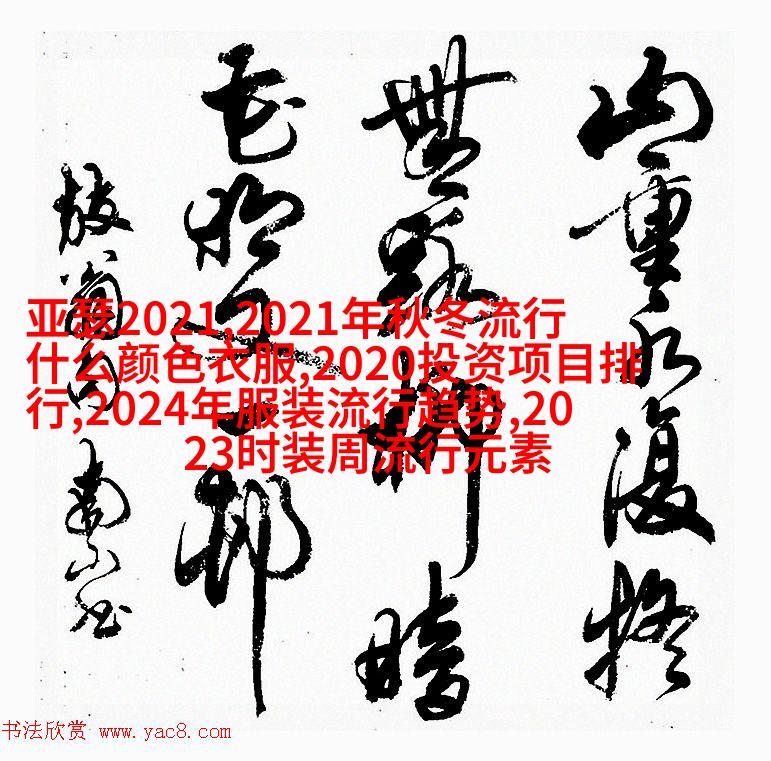 山重水復疑
無路柳暗
花明又一村
放翁句
亚瑟2021,2021年秋冬流行
什么颜色衣服,2020投资项目排
行,2024年服装流行趋势,20
23时装周流行元素
书法欣赏 www.yac8.com